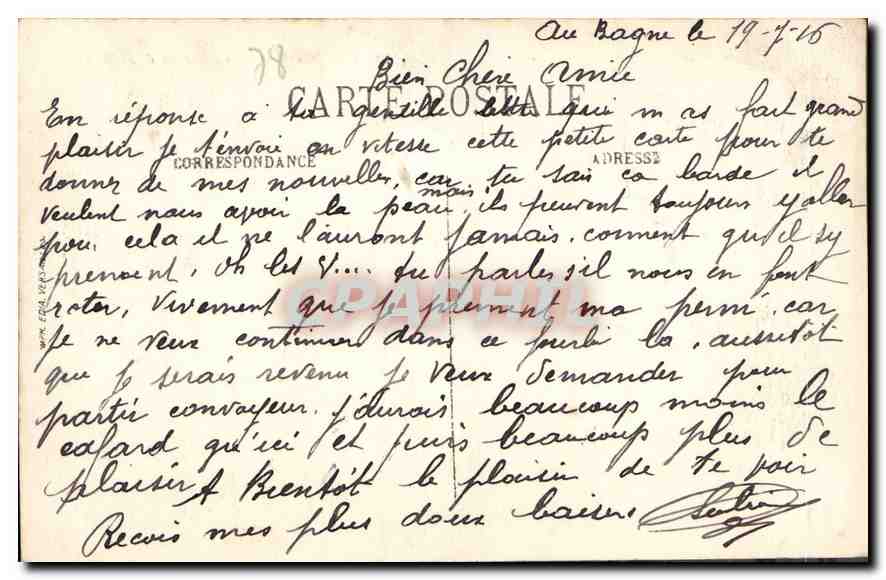 au Bagne le 19-7-16
78
Bien Chère Amie
CARTE POSTALE
En réponse à ta gentille lettre qui m as fait grand
plaisir je t'envoie en vitesse cette petite carte pour te
CORRESPONDANCE
ADRESSE
donner de mes nouvelles, car tu sais ca barde il
veulent nous avoir la peau, mais ils peuvent toujours y aller
pour cela il ne l'auront jamais. comment qu'il s'y
prennent, oh les V.... tu parles s'il nous en font
roter, vivement que je prennent ma permi. car
CPAPHIL
je ne veux continuer dans ce fourbi la, aussitôt
que je serais revenu je veux demander pour
partir convoyeur. j'aurais beaucoup moins le
cafard qu'ici et puis beaucoup plus de
plaisir A Bientôt le plaisir de te voir
Recois mes plus doux baisers